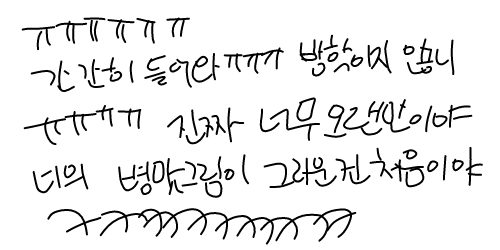 ㅠㅠㅠㅠㅠㅠ
간간히 들어와ㅠㅠㅠ 방학이지 않니
ㅠㅠㅠㅠ 진짜 너무 오랜만이야
너의 병맛그림이 그리운건 처음이야
ㅋㅋㅋㅋㅋㅋㅋㅋㅋ